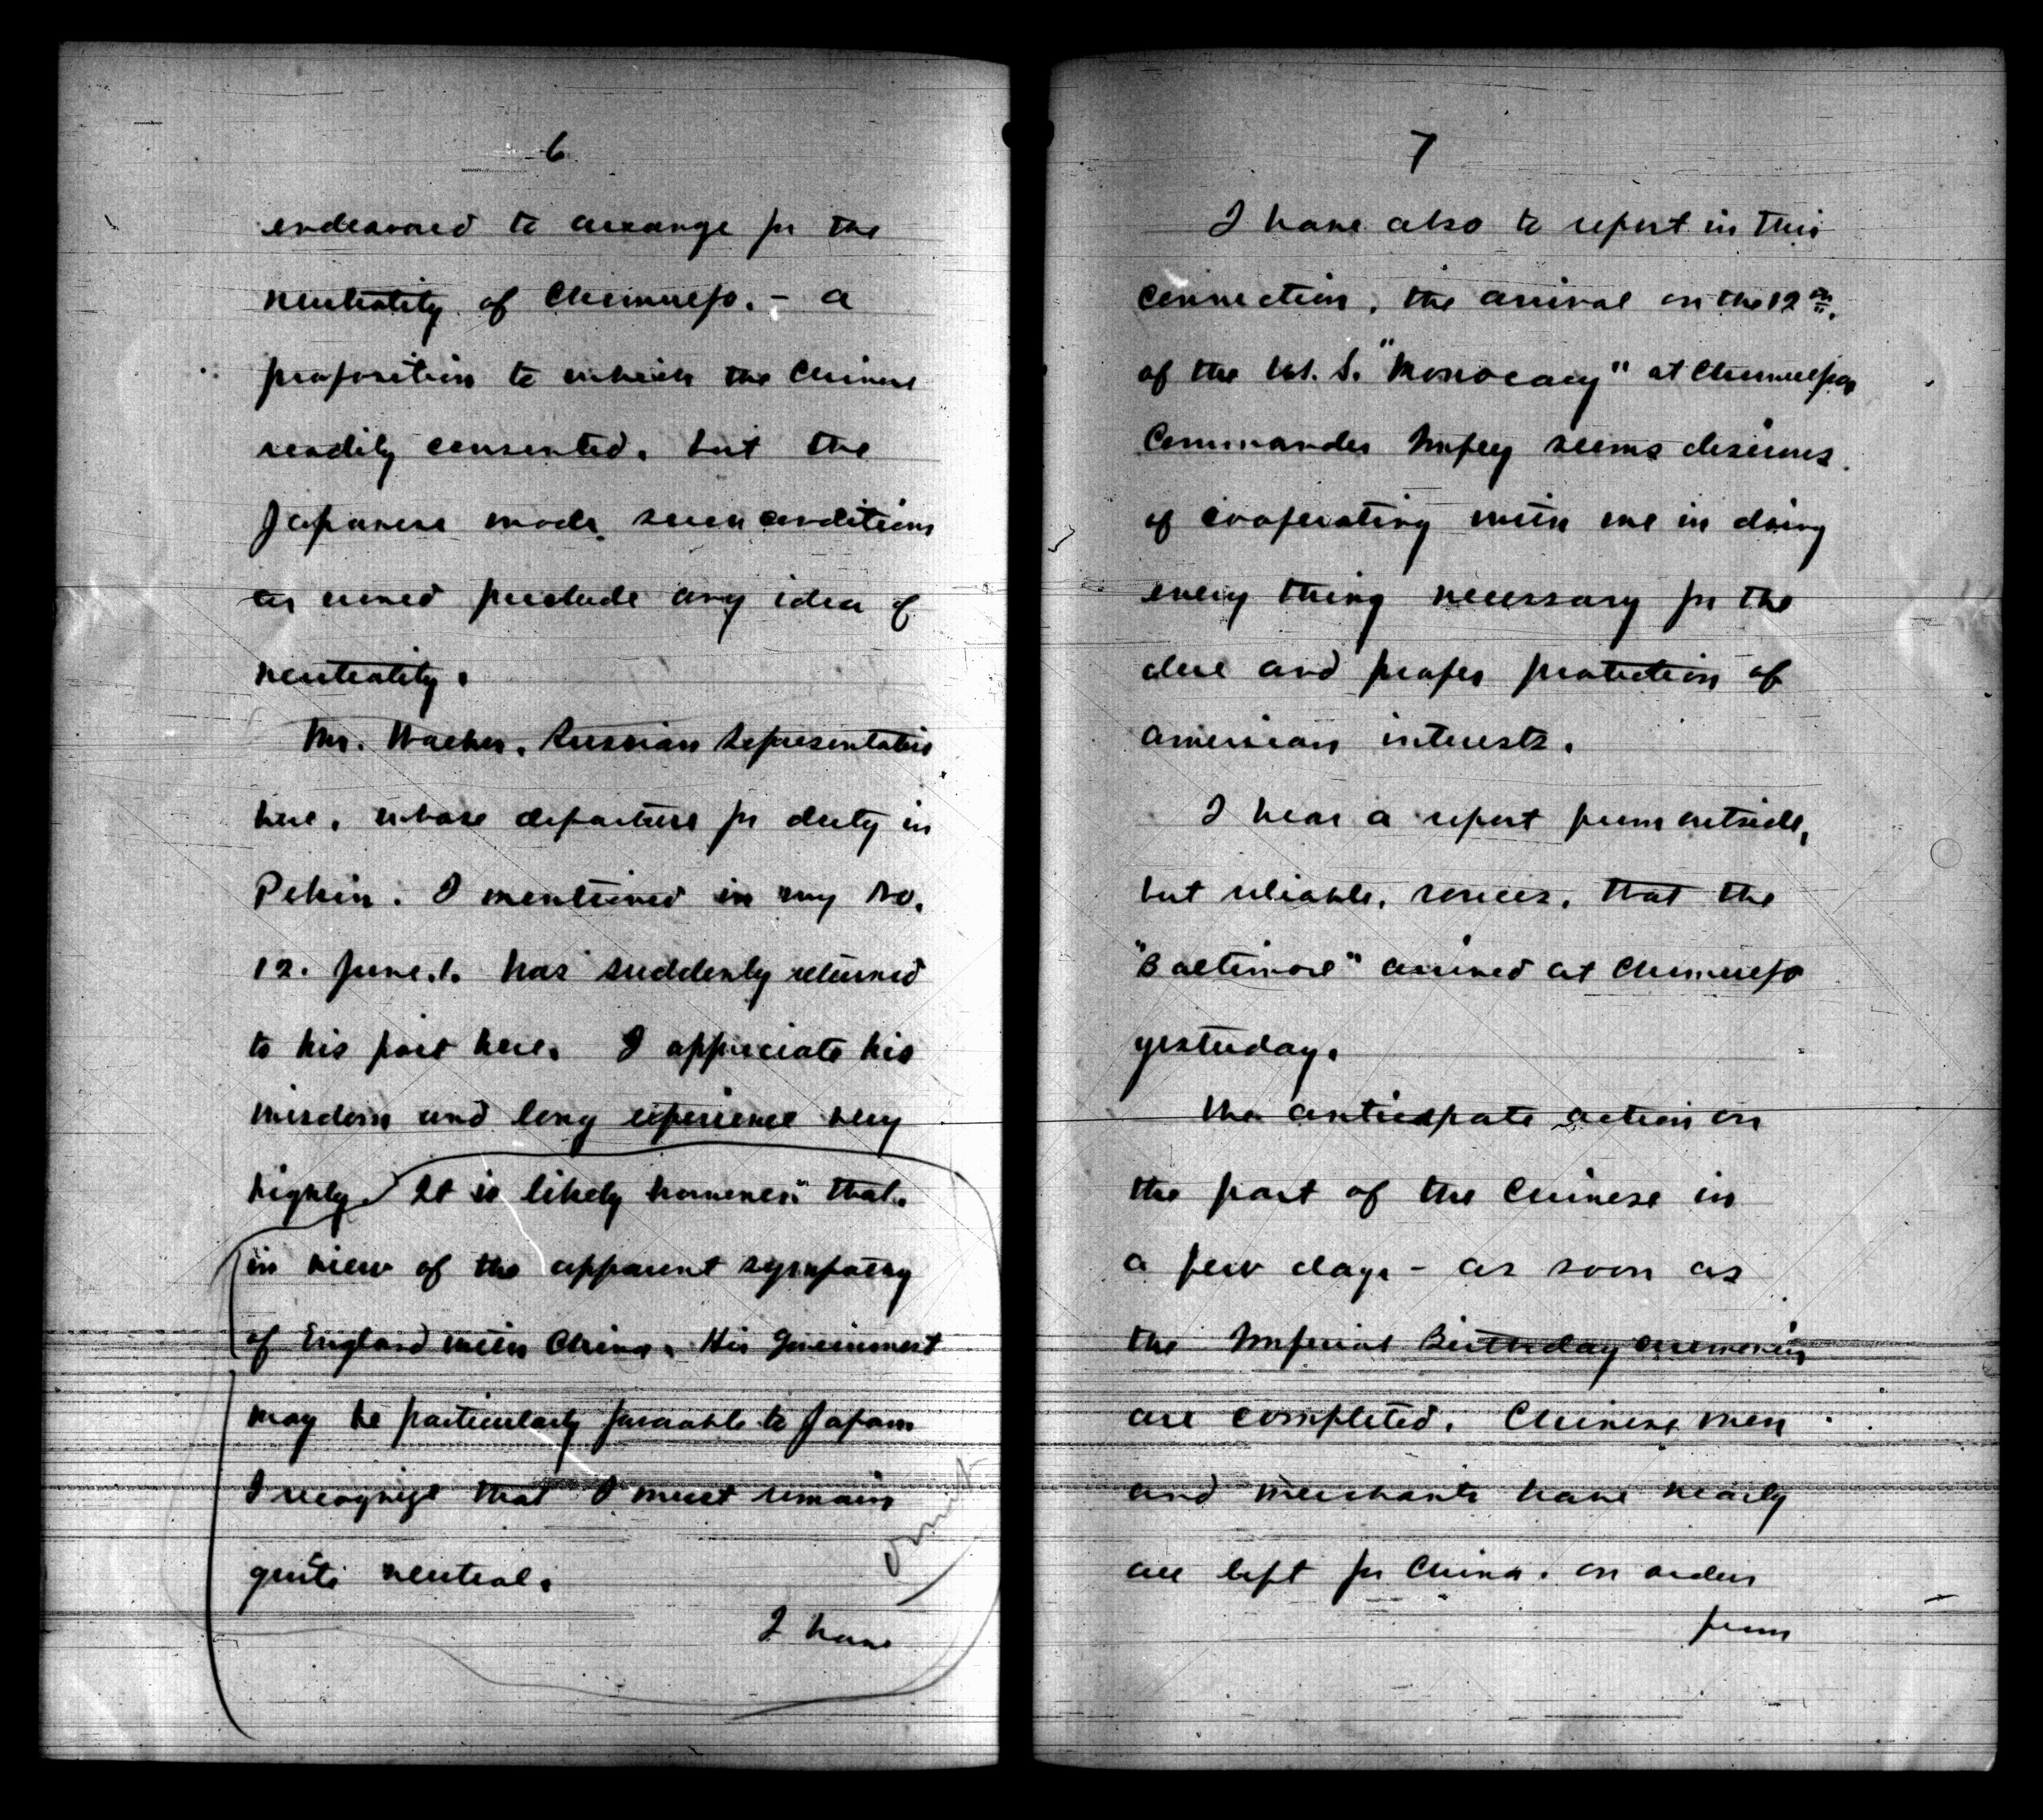 6
endeavored to arrange for the
neutrality of Chemulpo. - a
proposition to which the Chinese
readily consented, but the
Japanese made such conditions
as would preclude any idea of
neutrality.
Mr. Waeber, Russian Representative
here, whose departure for duty in
Pekin. I mentioned in my No.
12. June.1. has suddenly returned
to his post here. I appreciate his
wisdom and long experience very
highly. It is likely however that.
in view of the apparent sympathy
of England with China, His Government
may be particularly favorable to Japan
I recognize that I must remain
quite neutral.
omit
I have
7
I have also to report in this
connection, the arrival on the 12th.
of the U.S. S. "Monocacy" at Chemulpo
Commander Impey seems desirous
of cooperating with me in doing
every thing necessary for the
due and proper protection of
American interests.
I hear a report from outside,
but reliable, sources, that the
"Baltimore" arrived at Chemulpo
yesterday.
We anticipate action on
the part of the Chinese in
a few days - as soon as
the Imperial Birthday ceremonies
are completed. Chinese men
and merchants have nearly
all left for China. on orders
from